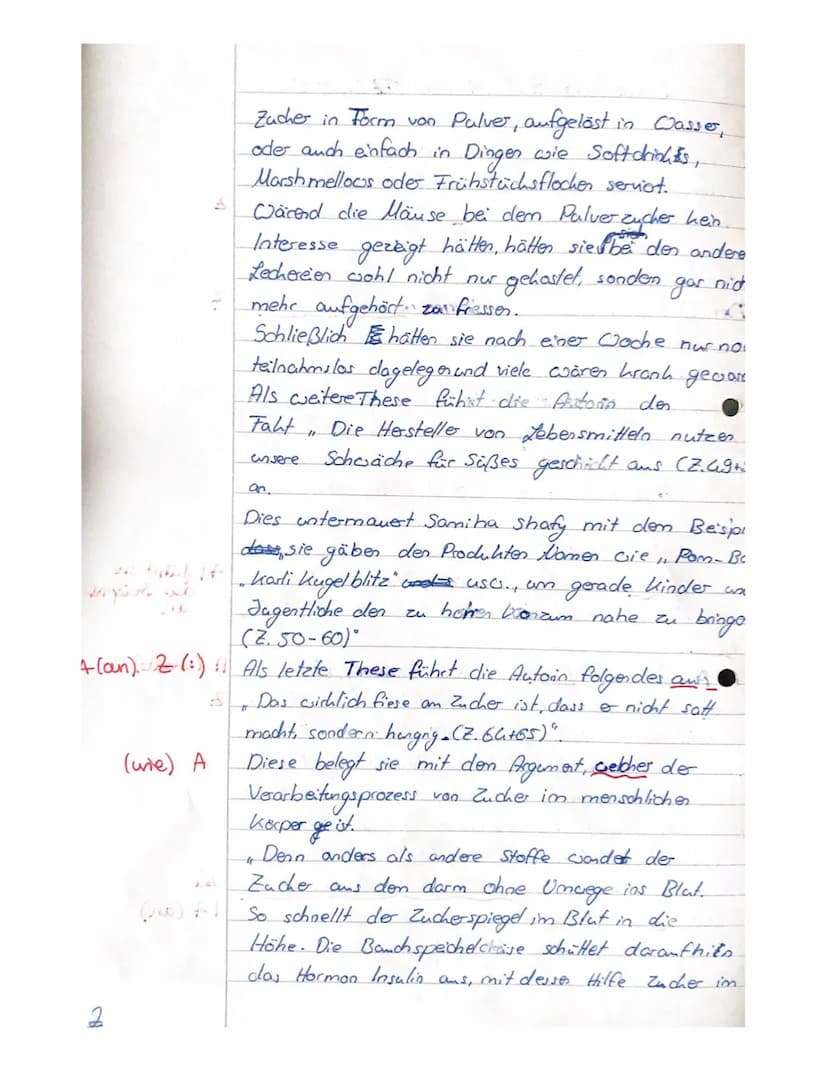 Zucker in Form von Pulver, aufgeläst in Wasser,
oder auch einfach in Dingen wie Softdrinks,
Marshmellows oder Frühstücksflocken serviert.
Wärend die Mäuse bei dem Pulverzucker kein
Interesse gezeigt hätten, hätten sie bei den andere
Leckereien wohl nicht nur gekostet, sonden gar nich
mehr aufgehört zu fressen.
Schließlich hätten sie nach einer Woche nur no
teilnahmslos dagelegen und viele wären krank gewor
Als weitere These führt die Autorin den
Fakt „ Die Hersteller von Lebensmitteln nutzen
unsere Schwäche für Süßes geschickt aus (Z.49+
an.
Dies untermauert Samiha Shafy mit dem Beispi
dass, sie gäben den Produkten Namen wie „ Pom-Bä
„Karli Kugelblitz" usw., um gerade Kinder un
Jugentliche den zu hohen Konzum nahe zu bringe
(Z. 50-60)"
A (an) Z (:) Als letzte These führt die Autorin folgendes aus
„ Das wirklich fiese an Zucker ist, dass er nicht satt
macht, sondern hungrig. (Z. 64+65)".
(wie) A Diese belegt sie mit dem Argument, welcher der
Verarbeitungsprozess von Zucker im menschlichen
Körper ist.
„ Denn anders als andere Stoffe wandet der
Zucker aus den darm ohne Umwege ins Blut.
So schnellt der Zuckerspiegel im Blut in die
Höhe. Die Bauchspeicheldrüse schüttet daraufhin
das Hormon Insulin aus, mit dessen Hilfe Zucker im
2